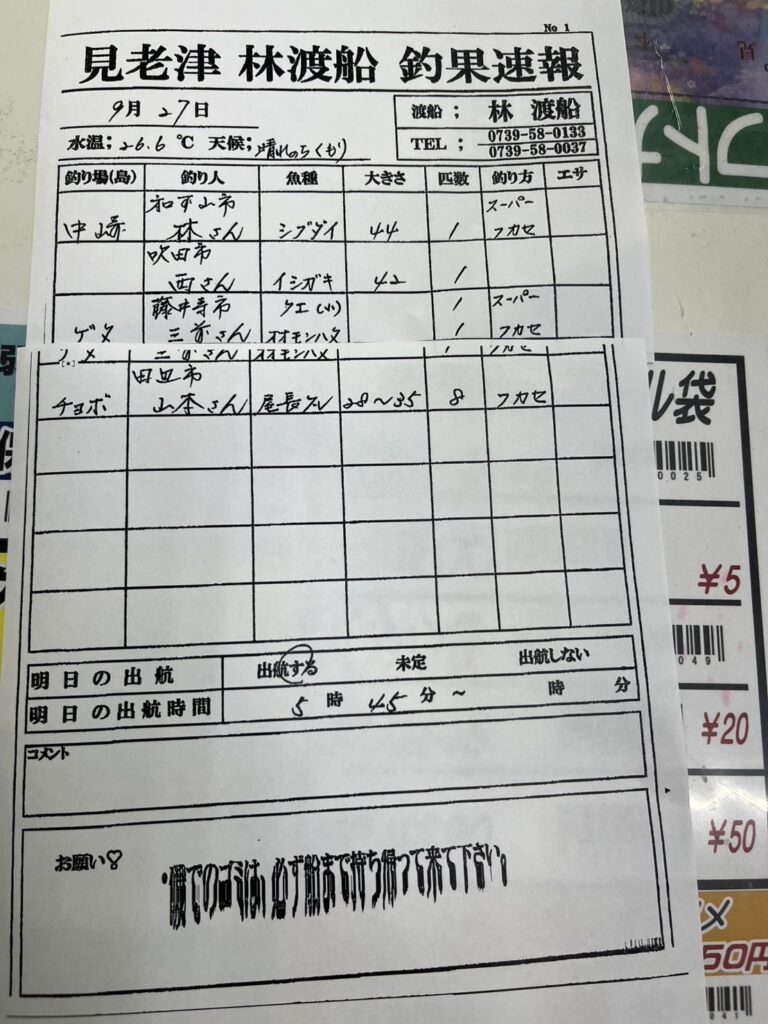 No 1
見老津 林渡船 釣果速報
9月27日
渡船； 林 渡船
水温；26.6 ℃ 天候；晴れのちくもり
TEL； 0739-58-0133
0739-58-0037
釣り場(島) 釣り人 魚種 大きさ 匹数 釣り方 エサ
和歌山市 スーパー
中崎 林さん シブダイ 44 1 フカセ
吹田市
西さん イシガキ 42 1
藤井寺市 クエ(小) 1 スーパー
ゲタ 三前さん オオモンハタ 1 フカセ
田辺市
チョボ 山本さん 尾長グレ 28〜35 8 フカセ
明日の出航 出航する 未定 出航しない
明日の出航時間 5 時 45 分 〜 時 分
コメント
お願い♡
・磯でのゴミは、必ず船まで持ち帰って来て下さい。
フト
ル袋
0025
¥5
049
¥20
¥50
メ
50円
041